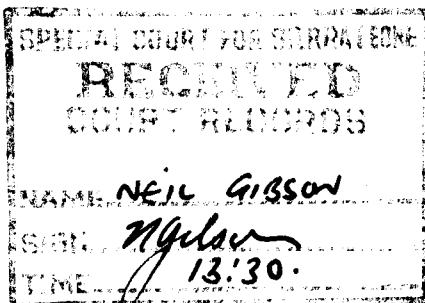 SPECIAL COURT FOR SIERRA LEONE
RECEIVED
COURT RECORDS
NAME NEIL GIBSON
SIGN NGibson
TIME 13:30.